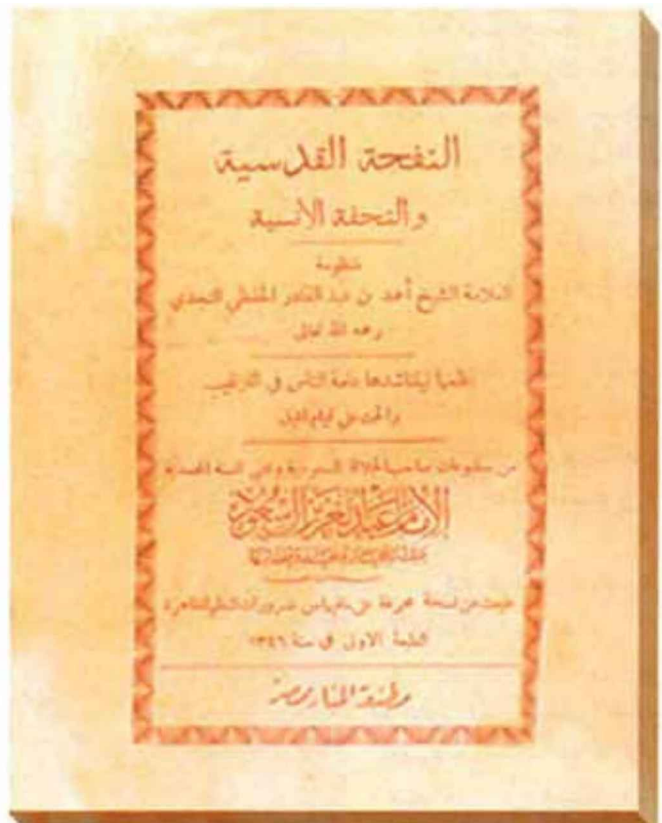 النفحة القدسية
والتحفة الأنسية
منظومة
العلامة الشيخ أحمد بن عبد القادر الحفظي النجدي
رحمه الله تعالى
نظمها ليتناشدها عامة الناس في الترغيب
والحث على قيام الليل
من مطبوعات صاحب الجلالة السعودية ومحيي السنة المحمدية
الإمام عبد العزيز السعود
طبعت عن نسخة محرفة على ما فيها من ضرورات النظم الظاهرة
الطبعة الاولى في سنة ١٣٤٦
مطبعة المنار بمصر